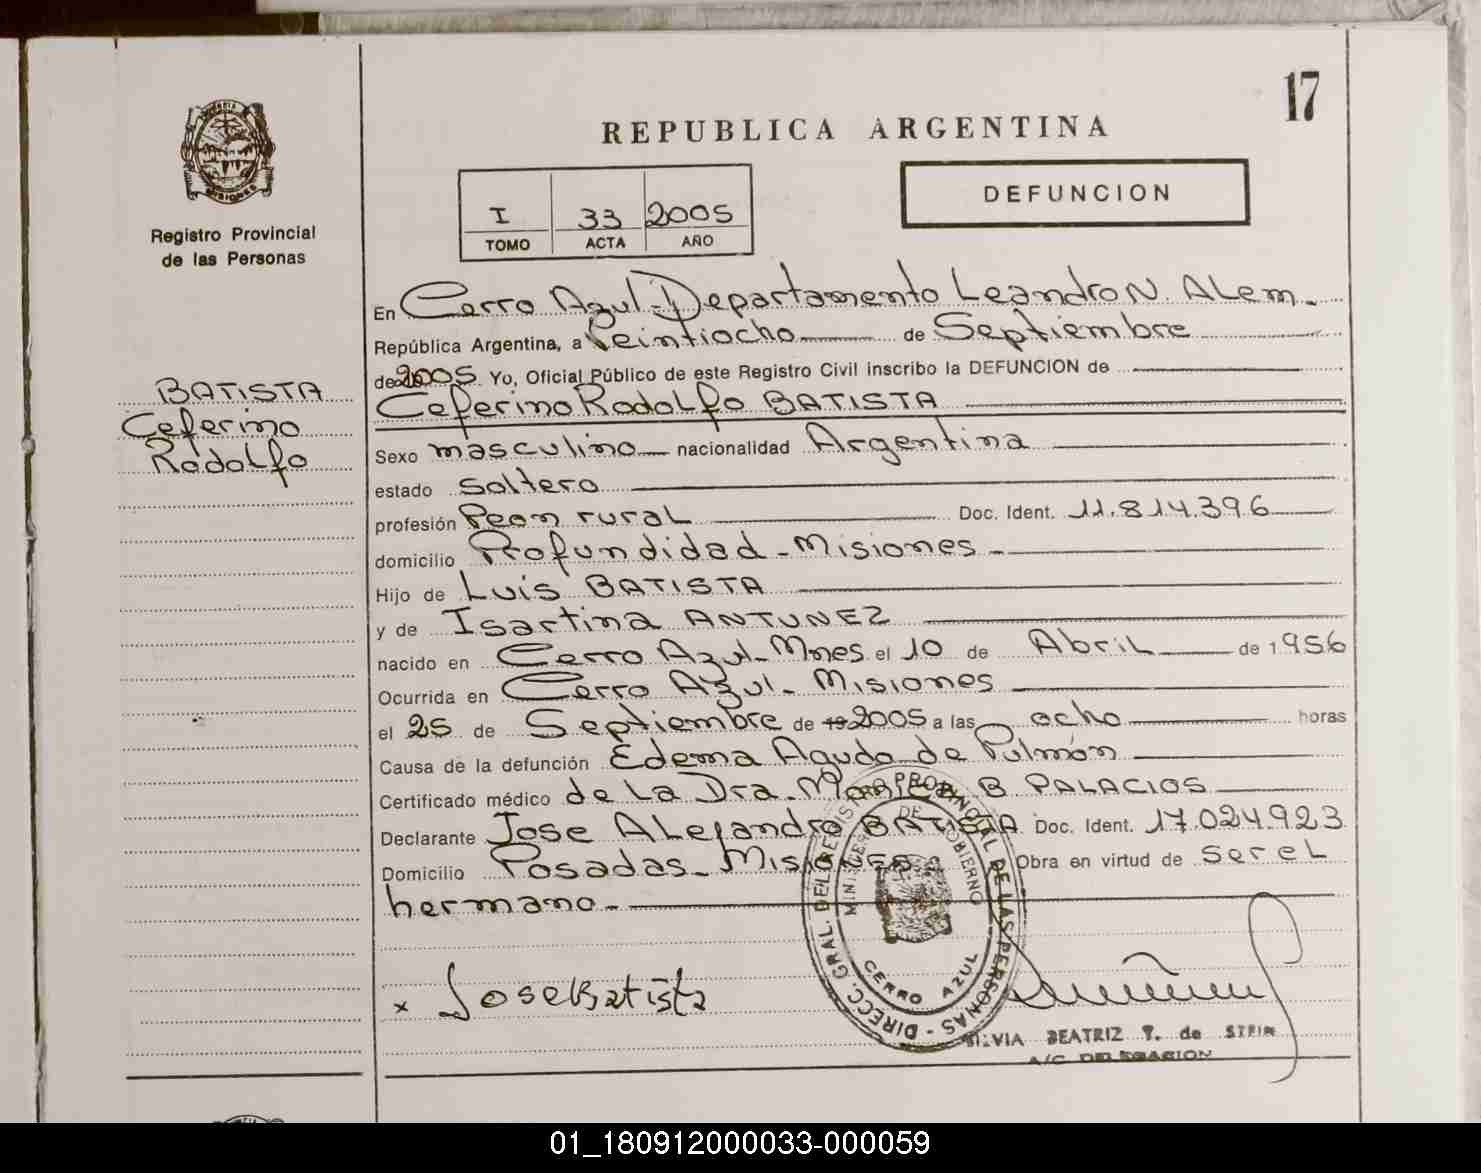 17
REPUBLICA ARGENTINA
DEFUNCION
I 33 2005
TOMO ACTA AÑO
Registro Provincial
de las Personas
BATISTA
Ceferino
Rodolfo
En Cerro Azul-Departamento Leandro N. Alem
República Argentina, a Veintiocho de Septiembre
de 2005. Yo, Oficial Público de este Registro Civil inscribo la DEFUNCION de
Ceferino Rodolfo BATISTA
Sexo masculino nacionalidad Argentina
estado soltero
profesión Peon rural Doc. Ident. 11.814.396
domicilio Profundidad-Misiones
Hijo de Luis BATISTA
y de Isartina ANTUNEZ
nacido en Cerro Azul-Mnes el 10 de Abril de 1956
Ocurrida en Cerro Azul-Misiones
el 25 de Septiembre de 19 2005 a las ocho horas
Causa de la defunción Edema Agudo de Pulmón
Certificado médico de la Dra. B PALACIOS
Declarante Jose Alejandro BATISTA Doc. Ident. 17.024.923
Domicilio Posadas-Misiones Obra en virtud de ser el
hermano
x Jose Batista
DIRECC. GRAL. DEL REGISTRO PROVINCIAL DE LAS PERSONAS
MINISTERIO DE GOBIERNO
CERRO AZUL
SILVIA BEATRIZ T. de
A/C DELEGACION
01_180912000033-000059